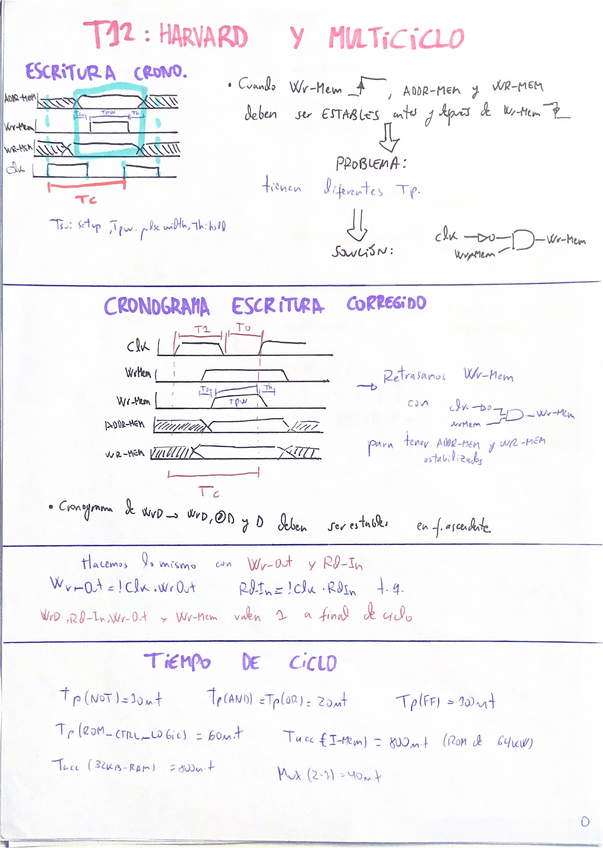 T12: HARVARD Y MULTICICLO
ESCRITURA CRONO.
ADDR-MEM
Tsu Tpw Th
Wr-Mem
WR-MEM
Clk
Tc
Tsu: setup, Tpw: pulse width, Th: hold
• Cuando Wr-Mem, ADDR-MEM y WR-MEM
deben ser ESTABLES antes y después de Wr-Mem
PROBLEMA:
tienen diferentes Tp.
SOLUCIÓN:
Clk
WrMem
Wr-Mem
CRONOGRAMA ESCRITURA CORREGIDO
T1 T0
Clk
WrMem
Wr-Mem
Tsu Tpw Th
ADDR-MEM
WR-MEM
Tc
→ Retrasamos Wr-Mem
con clk
WrMem
Wr-Mem
para tener ADDR-MEM y WR-MEM
estabilizados
• Cronograma de WrD → WrD, @D y D deben ser estables en f. ascendente
Hacemos lo mismo con Wr-Out y Rd-In
Wr-Out = !Clk · WrOut Rd-In = !Clk · RdIn t.q.
WrD, Rd-In, Wr-Out y Wr-Mem valen 1 a final de ciclo
TIEMPO DE CICLO
Tp(NOT) = 10 u.t Tp(AND) = Tp(OR) = 20 u.t Tp(FF) = 100 u.t
Tp(ROM_CTRL_LOGIC) = 60 u.t Tacc (I-Mem) = 800 u.t (ROM de 64KW)
Tacc (32KB-RAM) = 800 u.t Mux (2-1) = 40 u.t
0